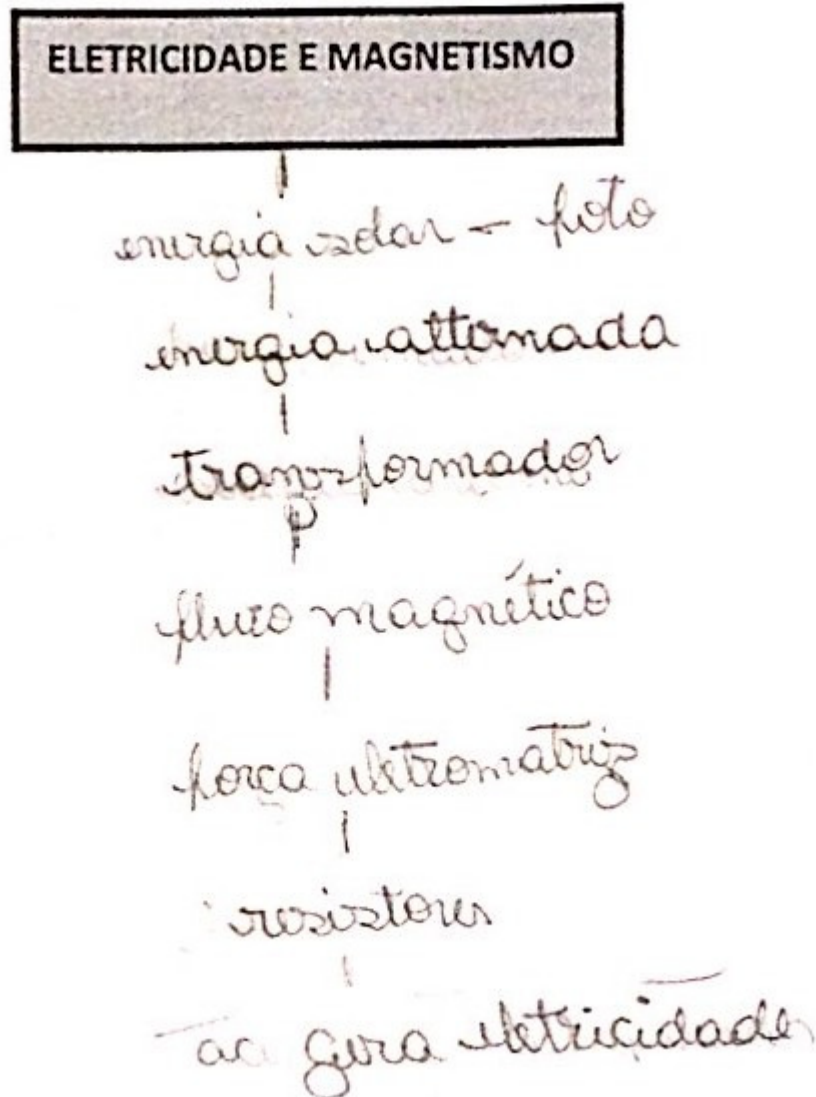 ELETRICIDADE E MAGNETISMO
energia solar - foto
energia alternada
transformador
fluxo magnético
força eletromatriz
resistores
ac gera eletricidade